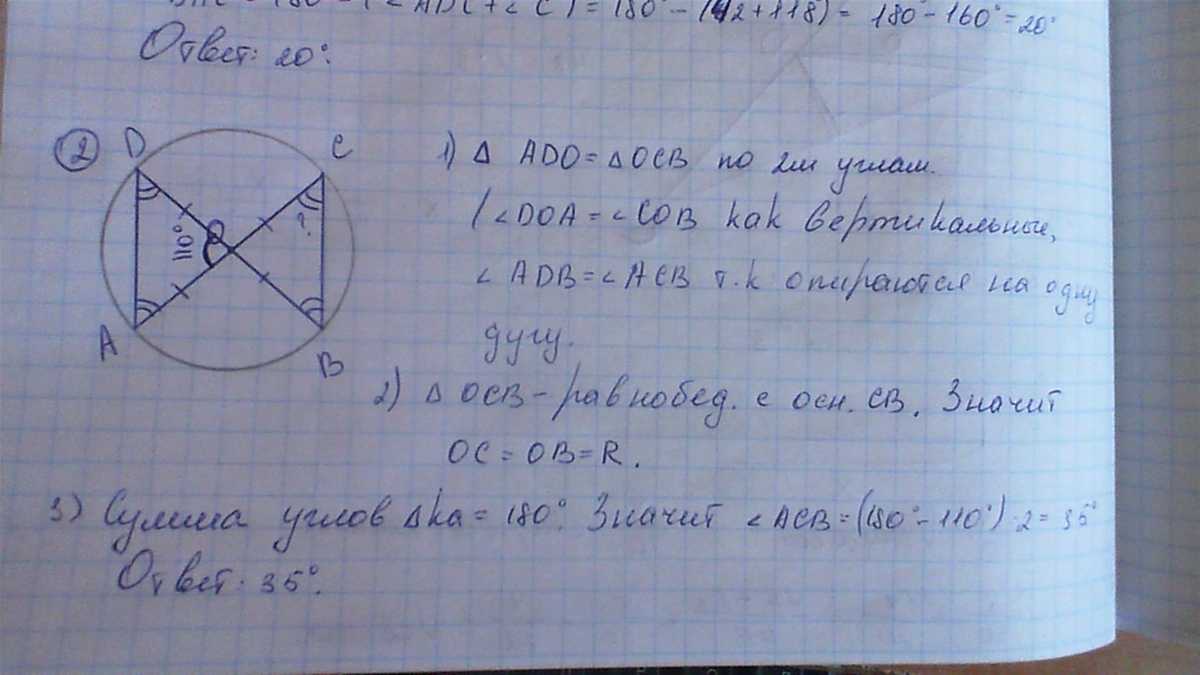 = 180° - (42+118) = 180° - 160° = 20°
Ответ: 20°.
2
D
C
1) Δ ADO = Δ OCB по 2м углам.
(∠DOA = ∠COB как вертикальные,
110°
?
O
∠ ADB = ∠ ACB т.к опираются на одну
дугу.
A
B
2) Δ OCB - равнобед. с осн. CB. Значит
OC = OB = R.
3) Сумма углов Δка = 180°. Значит ∠ ACB = (180° - 110°) : 2 = 35°
Ответ: 35°.